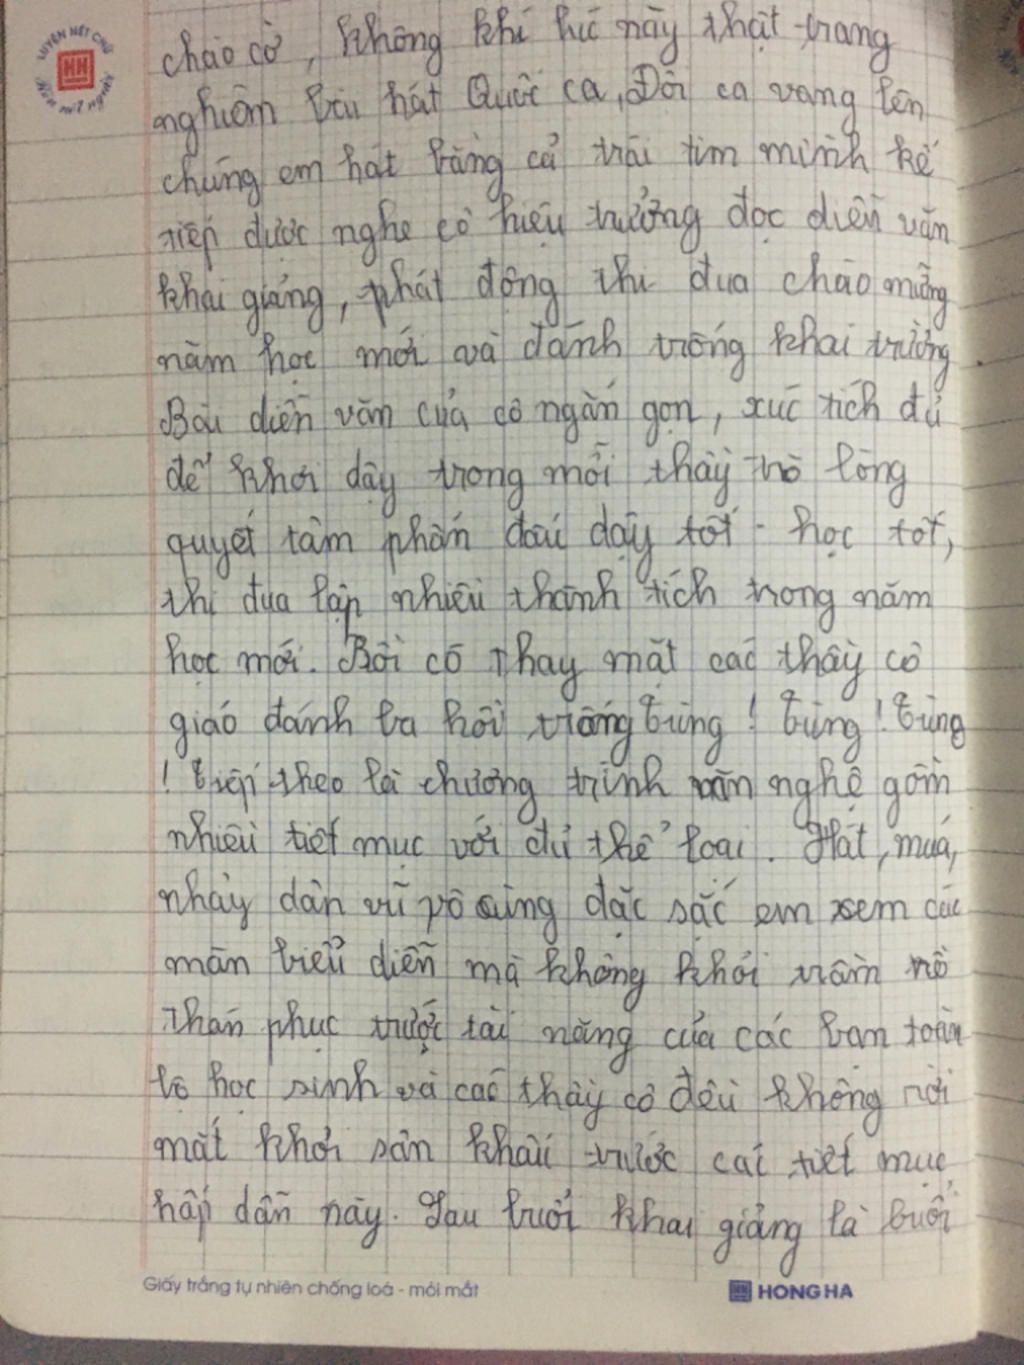 LUYỆN NÉT CHỮ
HH
Rèn nết người
chào cờ, không khí lúc này thật trang
nghiêm bài hát Quốc ca, Đội ca vang lên
chúng em hát bằng cả trái tim mình kế
tiếp được nghe cô hiệu trưởng đọc diễn văn
khai giảng, phát động thi đua chào mừng
năm học mới và đánh trống khai trường.
Bài diễn văn của cô ngắn gọn, xúc tích đủ
để khơi dậy trong mỗi thầy trò lòng
quyết tâm phấn đấu dạy tốt - học tốt,
thi đua lập nhiều thành tích trong năm
học mới. Rồi cô thay mặt các thầy cô
giáo đánh ba hồi trống tùng! tùng! tùng
! tiếp theo là chương trình văn nghệ gồm
nhiều tiết mục với đủ thể loại. Hát, múa,
nhảy dân vũ vô cùng đặc sắc em xem các
màn biểu diễn mà không khỏi trầm trồ
thán phục trước tài năng của các bạn toàn
bộ học sinh và các thầy cô đều không rời
mắt khỏi sân khấu trước các tiết mục
hấp dẫn này. Sau buổi khai giảng là buổi
Giấy trắng tự nhiên chống loá - mỏi mắt
HONG HA